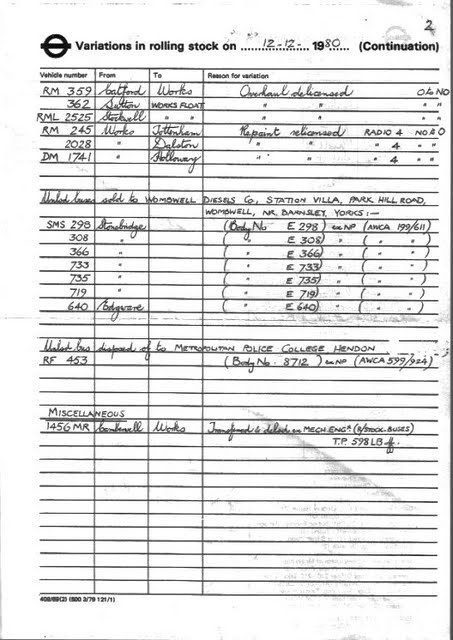 2
Variations in rolling stock on 12-12- 1980 (Continuation)
Vehicle number From To Reason for variation
RM 359 Catford Works Overhaul delicensed O to NO
362 Sutton WORKS FLOAT " " " "
RML 2525 Stockwell " " " " "
RM 245 Works Tottenham Repaint relicensed RADIO 4 NO to O
2028 " Dalston " " " 4 " "
DM 1741 " Holloway " " " 4 " "
Unlicd buses sold to WOMBWELL DIESELS Co, STATION VILLA, PARK HILL ROAD,
WOMBWELL, NR. BARNSLEY, YORKS :-
SMS 298 Stonebridge (Body No E 298) ex NP (AWCA 199/611)
308 " ( " E 308) " ( " )
366 " ( " E 366) " ( " )
733 " ( " E 733) " ( " )
735 " ( " E 735) " ( " )
719 " ( " E 719) " ( " )
640 Edgware ( " E 640) " ( " )
Unlicd bus disposed of to METROPOLITAN POLICE COLLEGE HENDON
RF 453 (Body No. 8712) ex NP (AWCA 599/924)
MISCELLANEOUS
1456 MR Camberwell Works Transferred & debited on MECH. ENGR (R/STOCK. BUSES)
T.P. 598 LB ff.
468/69(2) (600 3/79 121/1)